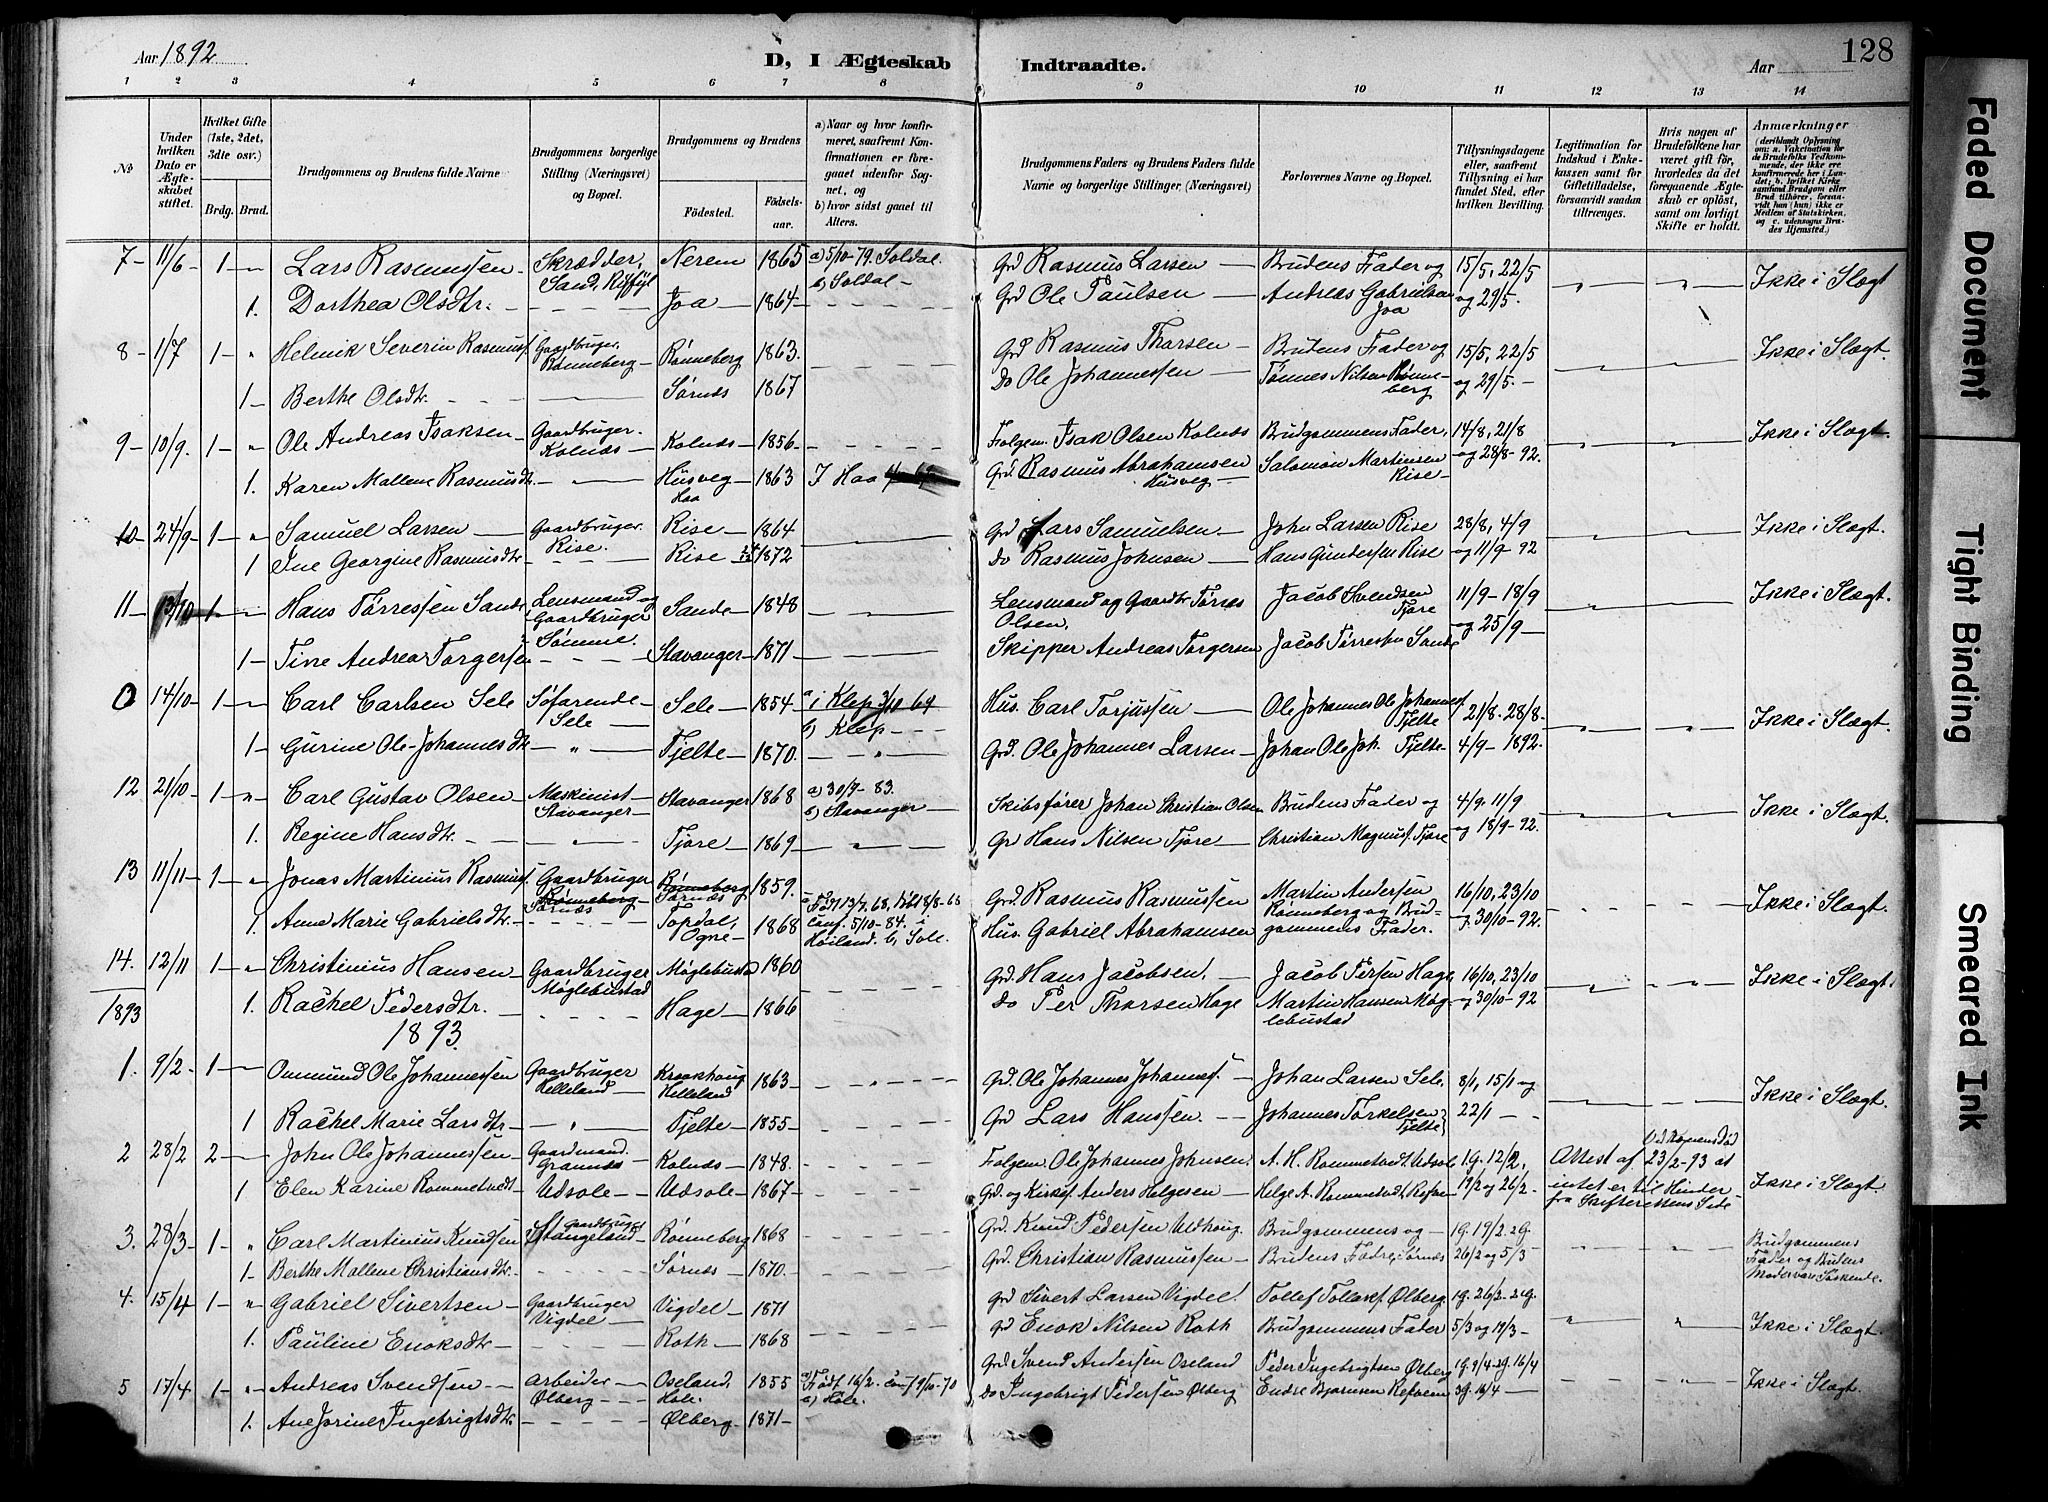 Aar 1892
D, I Ægteskab
Indtraadte.
Aar
128
1 2 3 4 5 6 7 8 9 10 11 12 13 14
No
Under hvilken Dato er Ægteskabet stiftet.
Hvilket Gifte (1ste, 2det, 3die osv.)
Brdg. Brud.
Brudgommens og Brudens fulde Navne
Brudgommens borgerlige Stilling (Næringsvei) og Bopæl.
Brudgommens og Brudens
Födested.
Födselsaar.
a) Naar og hvor konfirmeret, saafremt Konfirmationen er foregaaet udenfor Sognet, og
b) hvor sidst gaaet til Alters.
Brudgommens Faders og Brudens Faders fulde Navne og borgerlige Stillinger (Næringsvei)
Forlovernes Navne og Bopæl.
Tillysningsdagene eller, saafremt Tillysning ei har fundet Sted, efter hvilken Bevilling.
Legitimation for Indskud i Enkekassen samt for Giftetilladelse, forsaavidt saadan tiltrænges.
Hvis nogen af Brudefolkene har været gift för, hvorledes da det foregaaende Ægteskab er oplöst, samt om lovligt Skifte er holdt.
Anmærkninger (deriblandt Oplysning om: a. Vakcination for de Brudefolks Vedkommende, der ikke ere konfirmerede her i Landet; b. hvilket Kirkesamfund Brudgom eller Brud tilhörer, forsaavidt han (hun) ikke er Medlem af Statskirken, og c. udensogns Brudes Hjemsted.)
7 - 11/6 - 1 - " Lars Rasmussen - Skrædder, Sand, Ryfylk Nerem 1865 a) 5/10-79. Soldal. b) Soldal - Grd Rasmus Larsen - Brudens Fader og 15/5, 22/5 Ikke i Slægt
1. Dorthea Olsdtr. - Joa - 1864 - Grd Ole Paulsen - Andreas Gabrielsen Joa og 29/5.
8 - 1/7 1 - " Helmik Severin Rasmusf. Gaardbruger. Rønneberg - Rønneberg 1863. Grd Rasmus Thorsen - Brudens Fader og 15/5, 22/5 Ikke i Slægt.
1 - Berthe Olsdtr. Sørnes 1867 Do Ole Johannessen - Tønnes Nilsen Rønneberg og 29/5. -
9 - 10/9. 1 - " Ole Andreas Isaksen - Gaardbruger. Kolnæs - Kolnæs - 1856. Folgem. Isak Olsen Kolnæs Brudgommens Fader, 14/8, 21/8 Ikke i Slægt
1. Karen Mallene Rasmusdtr. - " - Husveg Haa 1863 I Haa Grd. Rasmus Abrahamsen Husveg - Salomon Martinsen Rise - og 28/8-92.
10 - 24/9 - 1 - " Samuel Larsen - Gaardbruger. Rise. Rise - 1864 Grd Lars Samuelsen. - John Larsen Rise 28/8, 4/9 Ikke i Slægt.
1 Ine Georgine Rasmusdtr - Rise 1872 do Rasmus Johnsen - Hans Gundersen Rise og 11/9-92
11 - 13/10 - 1 - " Hans Tørressen Sande Lensmand og Gaardbruger Sømme. Sande - 1848 Lensmand og Gaardbr Tørres Olsen. Jacob Svendsen Tjore 11/9 - 18/9 Ikke i Slægt.
1 - Tine Andrea Torgersen Stavanger - 1871 Skipper Andreas Torgersen Jacob Tørressen Sande og 25/9 -
0 14/10 - 1 - " Carl Carlsen Sele Søfarende - Sele - Sele - 1854 - a) i Klep 3/10 69 b) Klep - Hus. Carl Torjussen - Ole Johannes Ole Johannesf. Tjelte 21/8. 28/8 - Ikke i Slægt.
1 - Gurine Ole-Johannesdtr - " - Tjelte - 1870. Grd. Ole Johannes Larsen - Johan Ole Joh. Tjelte - 4/9 - 1892.
12 21/10 - 1 - " Carl Gustav Olsen - Maskinist - Stavanger - Stavanger 1868 a) 30/9 - 83. b) Stavanger - Skibsfører Johan Christian Olsen Brudens Fader og 4/9. 11/9 Ikke i Slægt.
1. Regine Hansdtr. - " - Tjore - 1869 - Gr Hans Nilsen Tjore - Christian Magnusf. Tjore og 18/9-92.
13 11/11 - 1 - " Jonas Martinius Rasmusf. Gaardbruger Rønneberg Sørnæs Rønneberg Sørnæs 1859. Grd. Rasmus Rasmussen Martin Andersen Rønneberg og Brudgommens Fader. 16/10, 23/10 Ikke i Slægt
1. Anne Marie Gabrielsdtr. Topdal, Ogne - 1868 conf. 5/10-84. i Høiland. b, Sole. Hus. Gabriel Abrahamsen 30/10-92.
14. 12/11 1 - " Christinius Hansen - Gaardbruger Møglebustad Møglebustad 1860 Grd. Hans Jacobsen. - Jacob Persen Hage 16/10, 23/10 Ikke i Slægt.
1893 1. Rachel Pedersdtr. - Hage - 1866 Do Per Thorsen Hage Martin Hansen Møglebustad og 30/10-92
1893.
1. 9/2 - 1 - Ommund Ole Johannessen Gaardbruger Helleland - Kraakhoug Helleland 1863 - Grd. Ole Johannes Johannesf. - Johan Larsen Sele, 8/1, 15/1 og Ikke i Slægt.
1 Rachel Marie Larsdtr - " - Tjelte - 1855 - Grd Lars Hanssen. - Johannes Torkelsen Tjelte 22/1 -
2 28/2 2 - John Ole Johannessen - Gaardmand. Grannæs Kolnæs - 1848. Folgem. Ole Johannes Johnsen. A. H. Rommetvedt Udsole 1 g. 12/2, Attest af 23/2-93 at intet er til Hinder fra Skifterettens Side - Ved Konens Død Ikke i Slægt.
1 Elen Karine Rommetvedt - Udsole - Udsole - 1867 - Grd. og Kirkes. Anders Helgesen - Helge A. Rommetvedt Refsnes 19/2 og 26/2 -
3. 28/3 - 1 - " Carl Martinius Knudsen Gaardbruger Stangeland - Rønneberg 1868 Grd. Knud Pedersen Udhoug. Brudgommens og - 1 g. 19/2. 2g. Brudgommens Fader og Brudens Moder vare Søskende.
1 - Berthe Mallene Christiansdtr. Sørnæs - 1870. Grd. Christian Rasmussen - Brudens Fædre, Sørnæs 26/2 og 5/3 -
4. 15/4 1 - " Gabriel Sivertsen - Gaardbruger Vigdel - Vigdel - 1871 Grd Sivert Larsen Vigdel. Tollef Tollefsf. Ølberg 1 g. 26/2 - 2 g. Ikke i Slægt.
1. Pauline Enoksdtr - Roth - 1868 gd Enok Nilsen Roth Brudgommens Fader 5/3 og 19/3 -
5 17/4 1 - " Andreas Svendsen - Arbeider - Ølberg - Oseland, Hole 1855 Født 16/2. conf 9/10-70 a) Hole. Grd Svend Andersen Oseland Peder Ingebrigtsen Ølberg 1 g. 9/4 - 2g. 16/4 Ikke i Slægt.
1. Ane Jorine Ingebrigtsdtr Ølberg - 1871 - Do Ingebrigt Pedersen Ølberg Endre Bjørnsen Refsnes 3 g. 16/4 -
Faded Document
Tight Binding
Smeared Ink